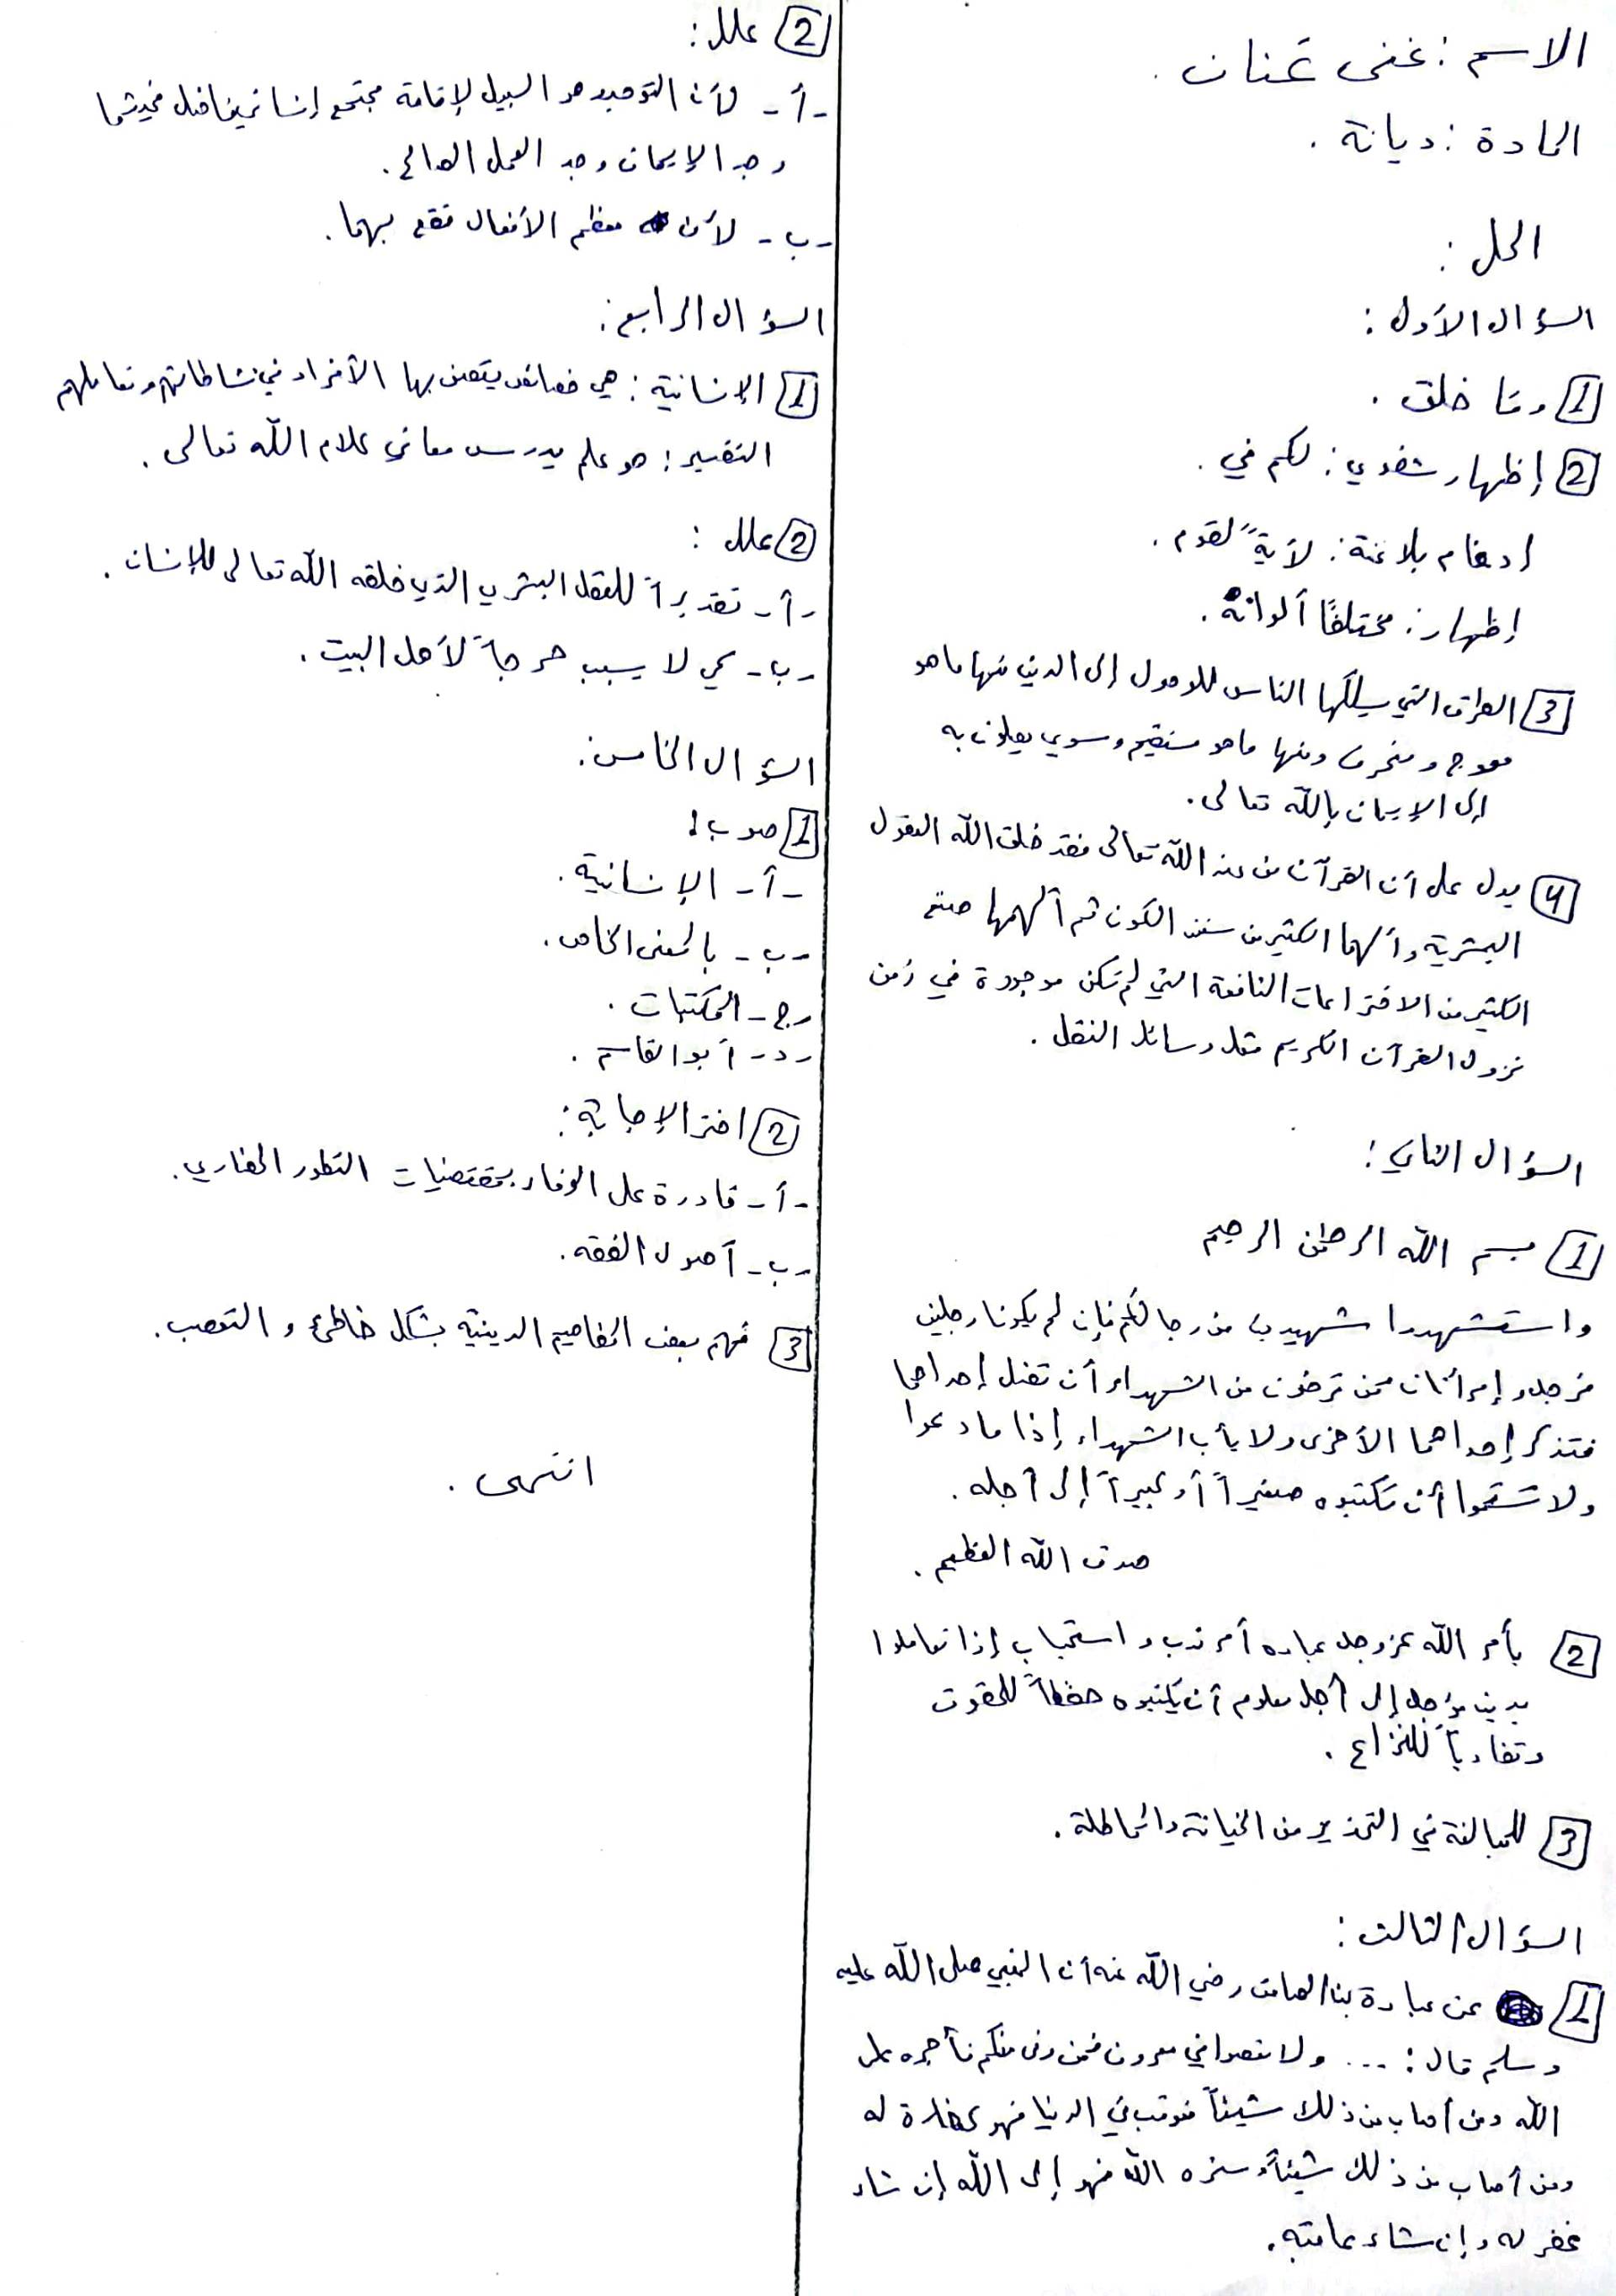 الاسم : غنى عنان .
المادة : ديانة .
الحل :
السؤال الأول :
1 وما خلق .
2 إظهار شفوي : لكم في .
إدغام بلا غنة : لآيةً لقوم .
إظهار : مختلفًا ألوانه .
3 الطرق التي يسلكها الناس للوصول إلى الدين منها ما هو
معوج و منحرف ومنها ما هو مستقيم و سوي يصلون به
إلى الإيمان بالله تعالى .
4 يدل على أن القرآن من عند الله تعالى فقد خلق الله العقول
البشرية وألهما الكثير من سنن الكون ثم ألهمها صنع
الكثير من الاختراعات النافعة التي لم تكن موجودة في زمن
نزول القرآن الكريم مثل وسائل النقل .
السؤال الثاني :
1 بسم الله الرحمن الرحيم
واستشهدوا شهيدين من رجالكم فإن لم يكونا رجلين
فرجل و إمرأتان ممن ترضون من الشهداء أن تضل إحداهما
فتذكر إحداهما الأخرى ولا يأب الشهداء إذا ما دعوا
ولا تسئموا أن تكتبوه صغيراً أو كبيراً إلى أجله .
صدق الله العظيم .
2 يأمر الله عز وجل عباده أمر ندب و استحباب إذا تعاملوا
بدين مؤجل إلى أجل معلوم أن يكتبوه حفظاً للحقوق
وتفادياً للنزاع .
3 للمبالغة في التحذير من الخيانة والمماطلة .
السؤال الثالث :
1 عن عبادة بن الصامت رضي الله عنه أن النبي صلى الله عليه
وسلم قال : ... ولا تعصوا في معروف فمن وفى منكم فأجره على
الله ومن أصاب من ذلك شيئاً فعوقب في الدنيا فهو كفارة له
ومن أصاب من ذلك شيئاً وستره الله فهو إلى الله إن شاء
غفر له و إن شاء عاقبه .
2 علل :
-أ- لأن التوحيد هو السبيل لإقامة مجتمع إنساني فاضل فحيثما
وجد الإيمان وجد العمل الصالح .
-ب- لأن معظم الأفعال تقع بهما .
السؤال الرابع :
1 الإنسانية : هي خصائص يتصف بها الأفراد في نشاطاتهم وتعاملهم
التفسير : هو علم يدرس معاني كلام الله تعالى .
2 علل :
-أ- تقديراً للعقل البشري الذي خلقه الله تعالى للإنسان .
-ب- كي لا يسبب حرجاً لأهل البيت .
السؤال الخامس :
1 صوب :
-أ- الإنسانية .
-ب- بالمعنى الخاص .
-ج- المكتبات .
-د- أبو القاسم .
2 اختر الإجابة :
-أ- قادرة على الوفاء بمقتضيات التطور الحضاري .
-ب- أصول الفقه .
3 فهم بعض المفاهيم الدينية بشكل خاطئ و التعصب .
انتهى .